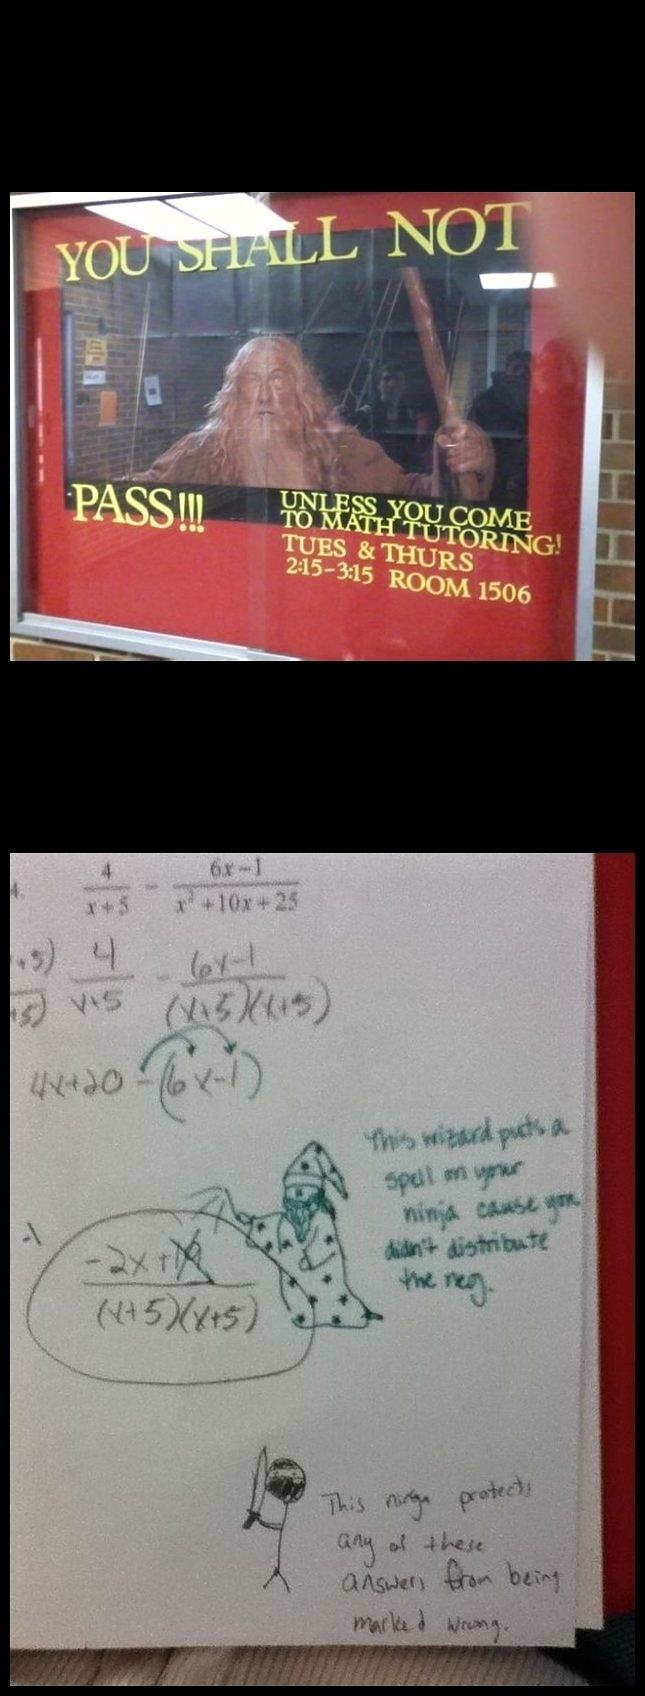 YOU SHALL NOT
PASS!!!
UNLESS YOU COME
TO MATH TUTORING!
TUES & THURS
2:15-3:15 ROOM 1506
4.
4/(x+5) - (6x-1)/(x²+10x+25)
+5)/+5) 4/(x+5) - (6x-1)/((x+5)(x+5))
4x+20-(6x-1)
This wizard puts a
spell on your
ninja cause you
didn't distribute
the neg.
-1
(-2x+19)/((x+5)(x+5))
This ninga protects
any of these
answers from being
marked wrong.